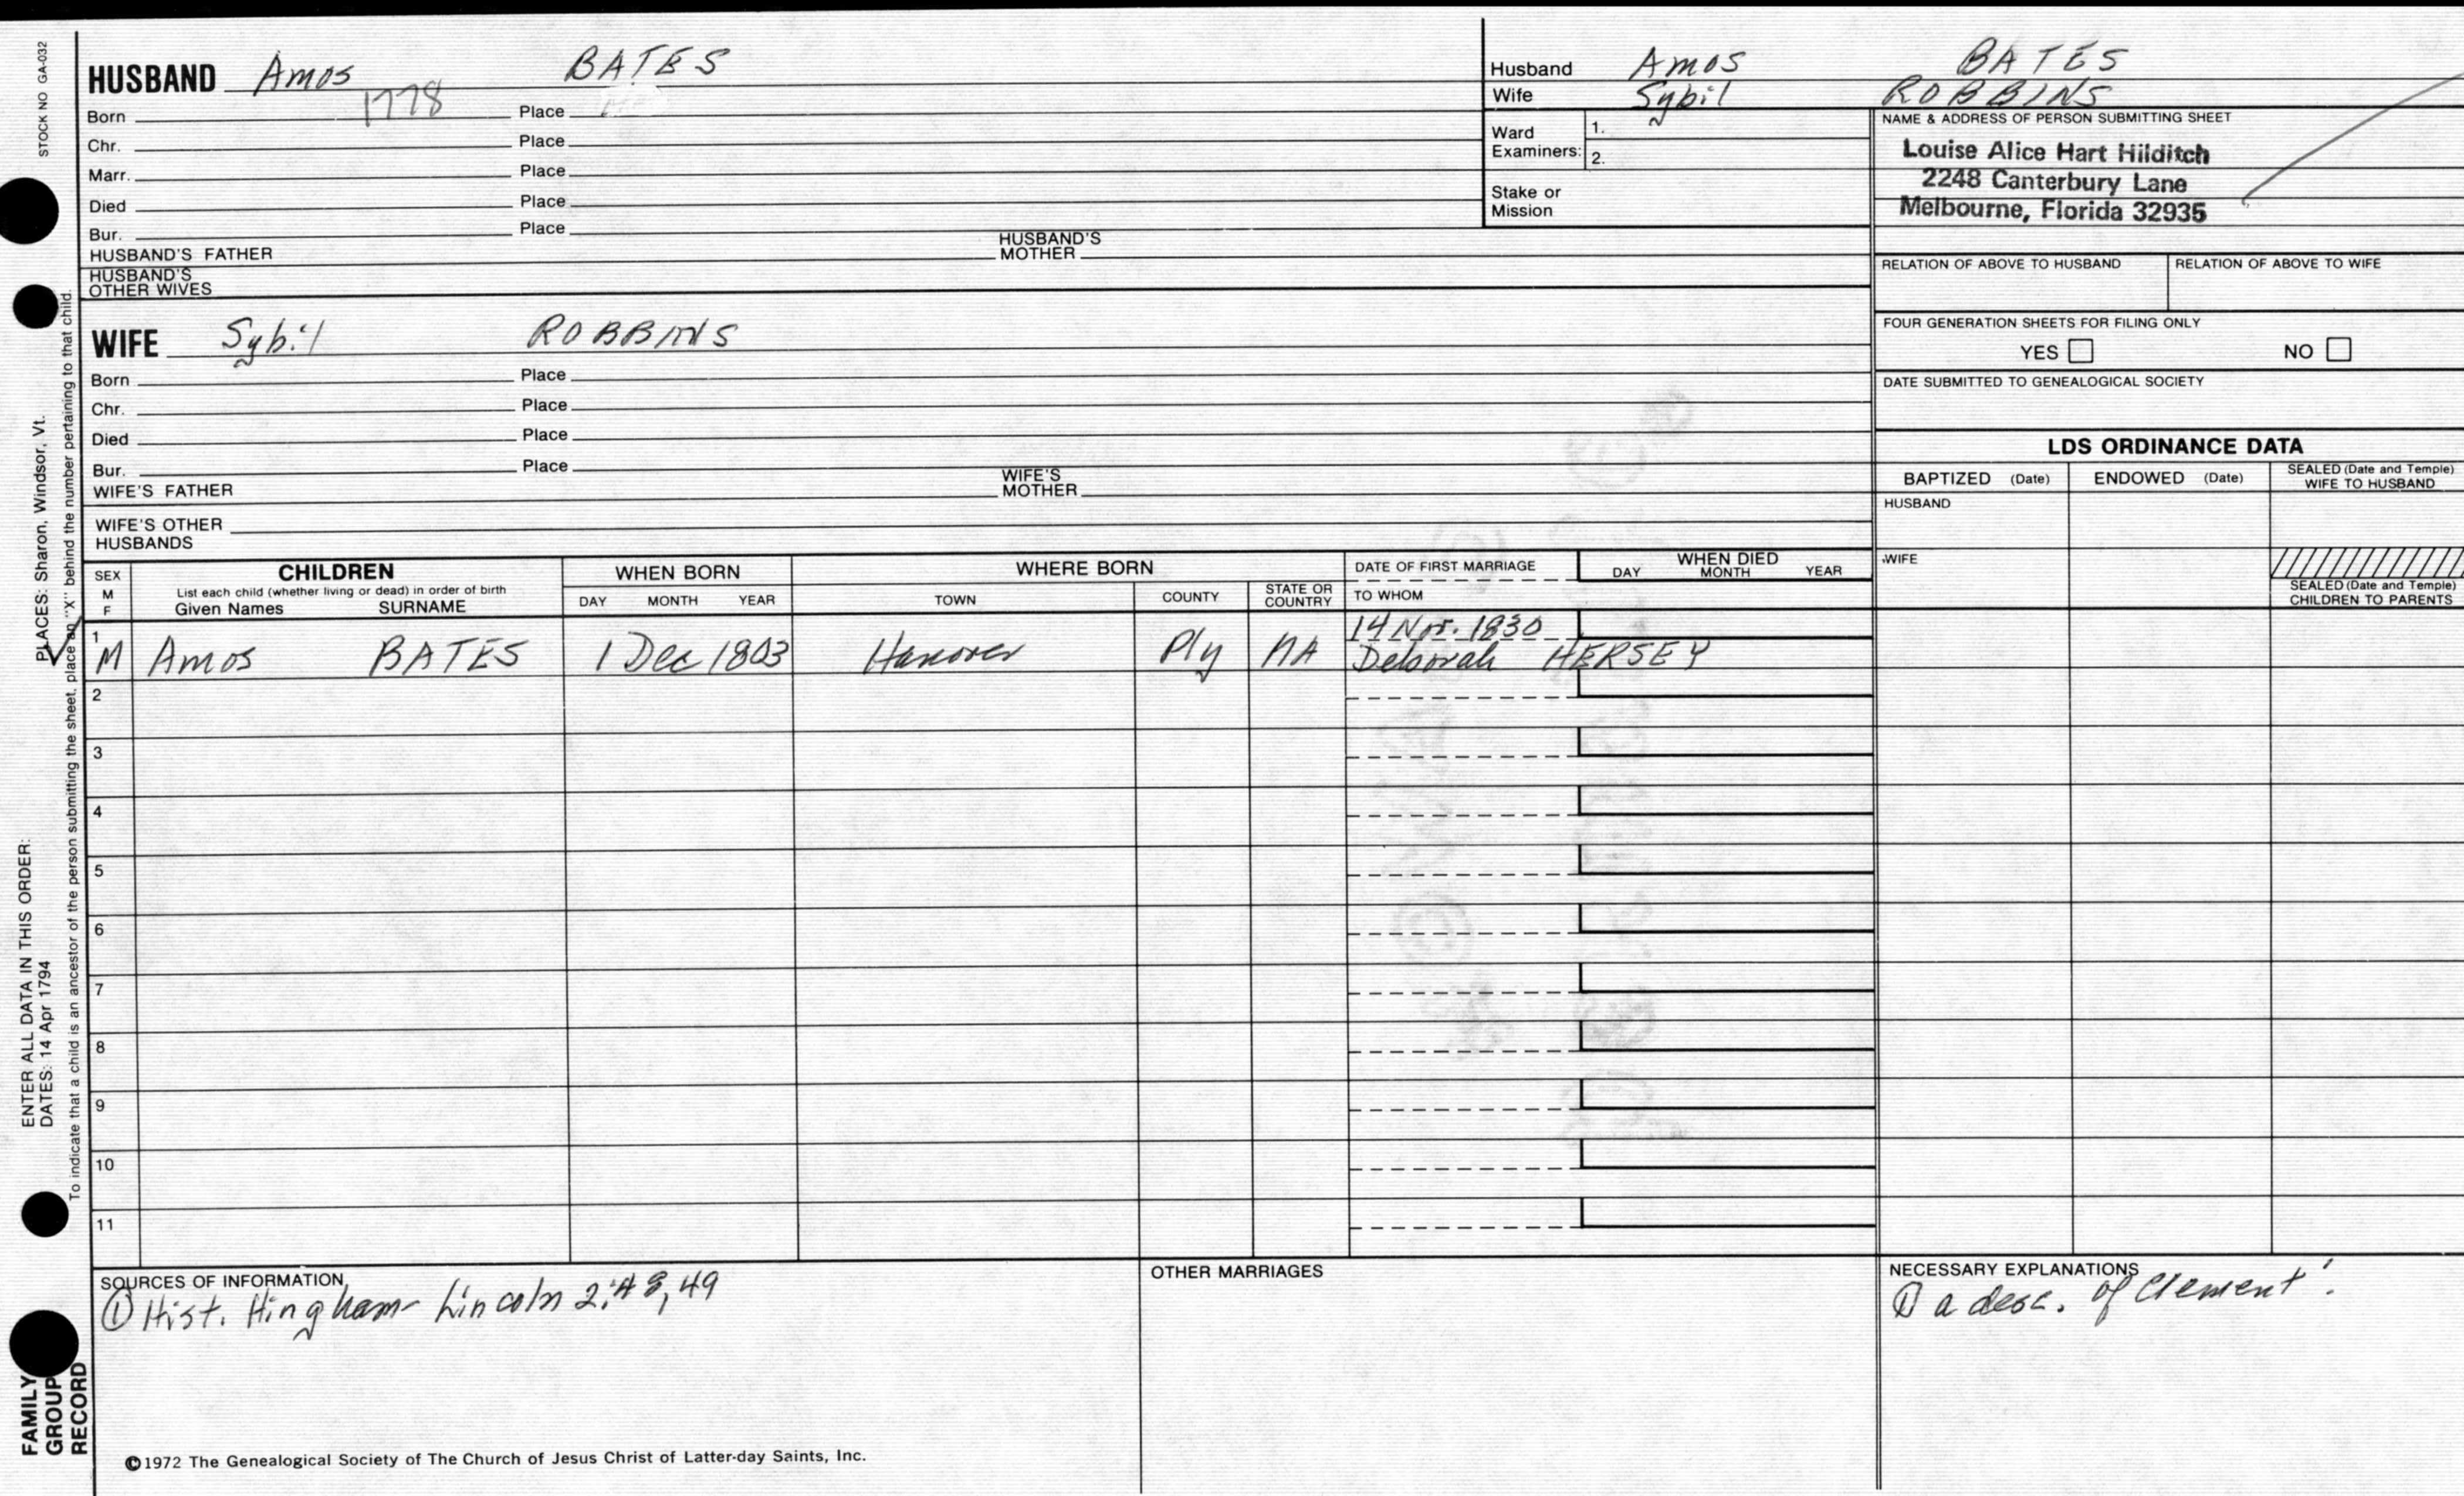 STOCK NO GA-032
HUSBAND Amos BATES
Born 1778 Place
Chr. Place
Marr. Place
Died Place
Bur. Place
HUSBAND'S FATHER HUSBAND'S MOTHER
HUSBAND'S OTHER WIVES
WIFE Sybil ROBBINS
Born Place
Chr. Place
Died Place
Bur. Place
WIFE'S FATHER WIFE'S MOTHER
WIFE'S OTHER HUSBANDS
Husband Amos BATES
Wife Sybil ROBBINS
Ward Examiners: 1.
2.
Stake or Mission
NAME & ADDRESS OF PERSON SUBMITTING SHEET
Louise Alice Hart Hilditch
2248 Canterbury Lane
Melbourne, Florida 32935
RELATION OF ABOVE TO HUSBAND RELATION OF ABOVE TO WIFE
FOUR GENERATION SHEETS FOR FILING ONLY
YES NO
DATE SUBMITTED TO GENEALOGICAL SOCIETY
LDS ORDINANCE DATA
BAPTIZED (Date) ENDOWED (Date) SEALED (Date and Temple) WIFE TO HUSBAND
HUSBAND
WIFE
SEALED (Date and Temple) CHILDREN TO PARENTS
SEX M F
CHILDREN
List each child (whether living or dead) in order of birth
Given Names SURNAME
WHEN BORN
DAY MONTH YEAR
WHERE BORN
TOWN COUNTY STATE OR COUNTRY
DATE OF FIRST MARRIAGE
TO WHOM
WHEN DIED
DAY MONTH YEAR
1 14 Nov. 1830
M Amos BATES 1 Dec 1803 Hanover Ply MA Deborah HERSEY
2
3
4
5
6
7
8
9
10
11
SOURCES OF INFORMATION
① Hist. Hingham Lincoln 2:48, 49
OTHER MARRIAGES
NECESSARY EXPLANATIONS
① a desc. of Clement'.
PLACES: Sharon, Windsor, Vt.
ENTER ALL DATA IN THIS ORDER:
DATES: 14 Apr 1794
To indicate that a child is an ancestor of the person submitting the sheet, place an "X" behind the number pertaining to that child.
FAMILY GROUP RECORD
©1972 The Genealogical Society of The Church of Jesus Christ of Latter-day Saints, Inc.